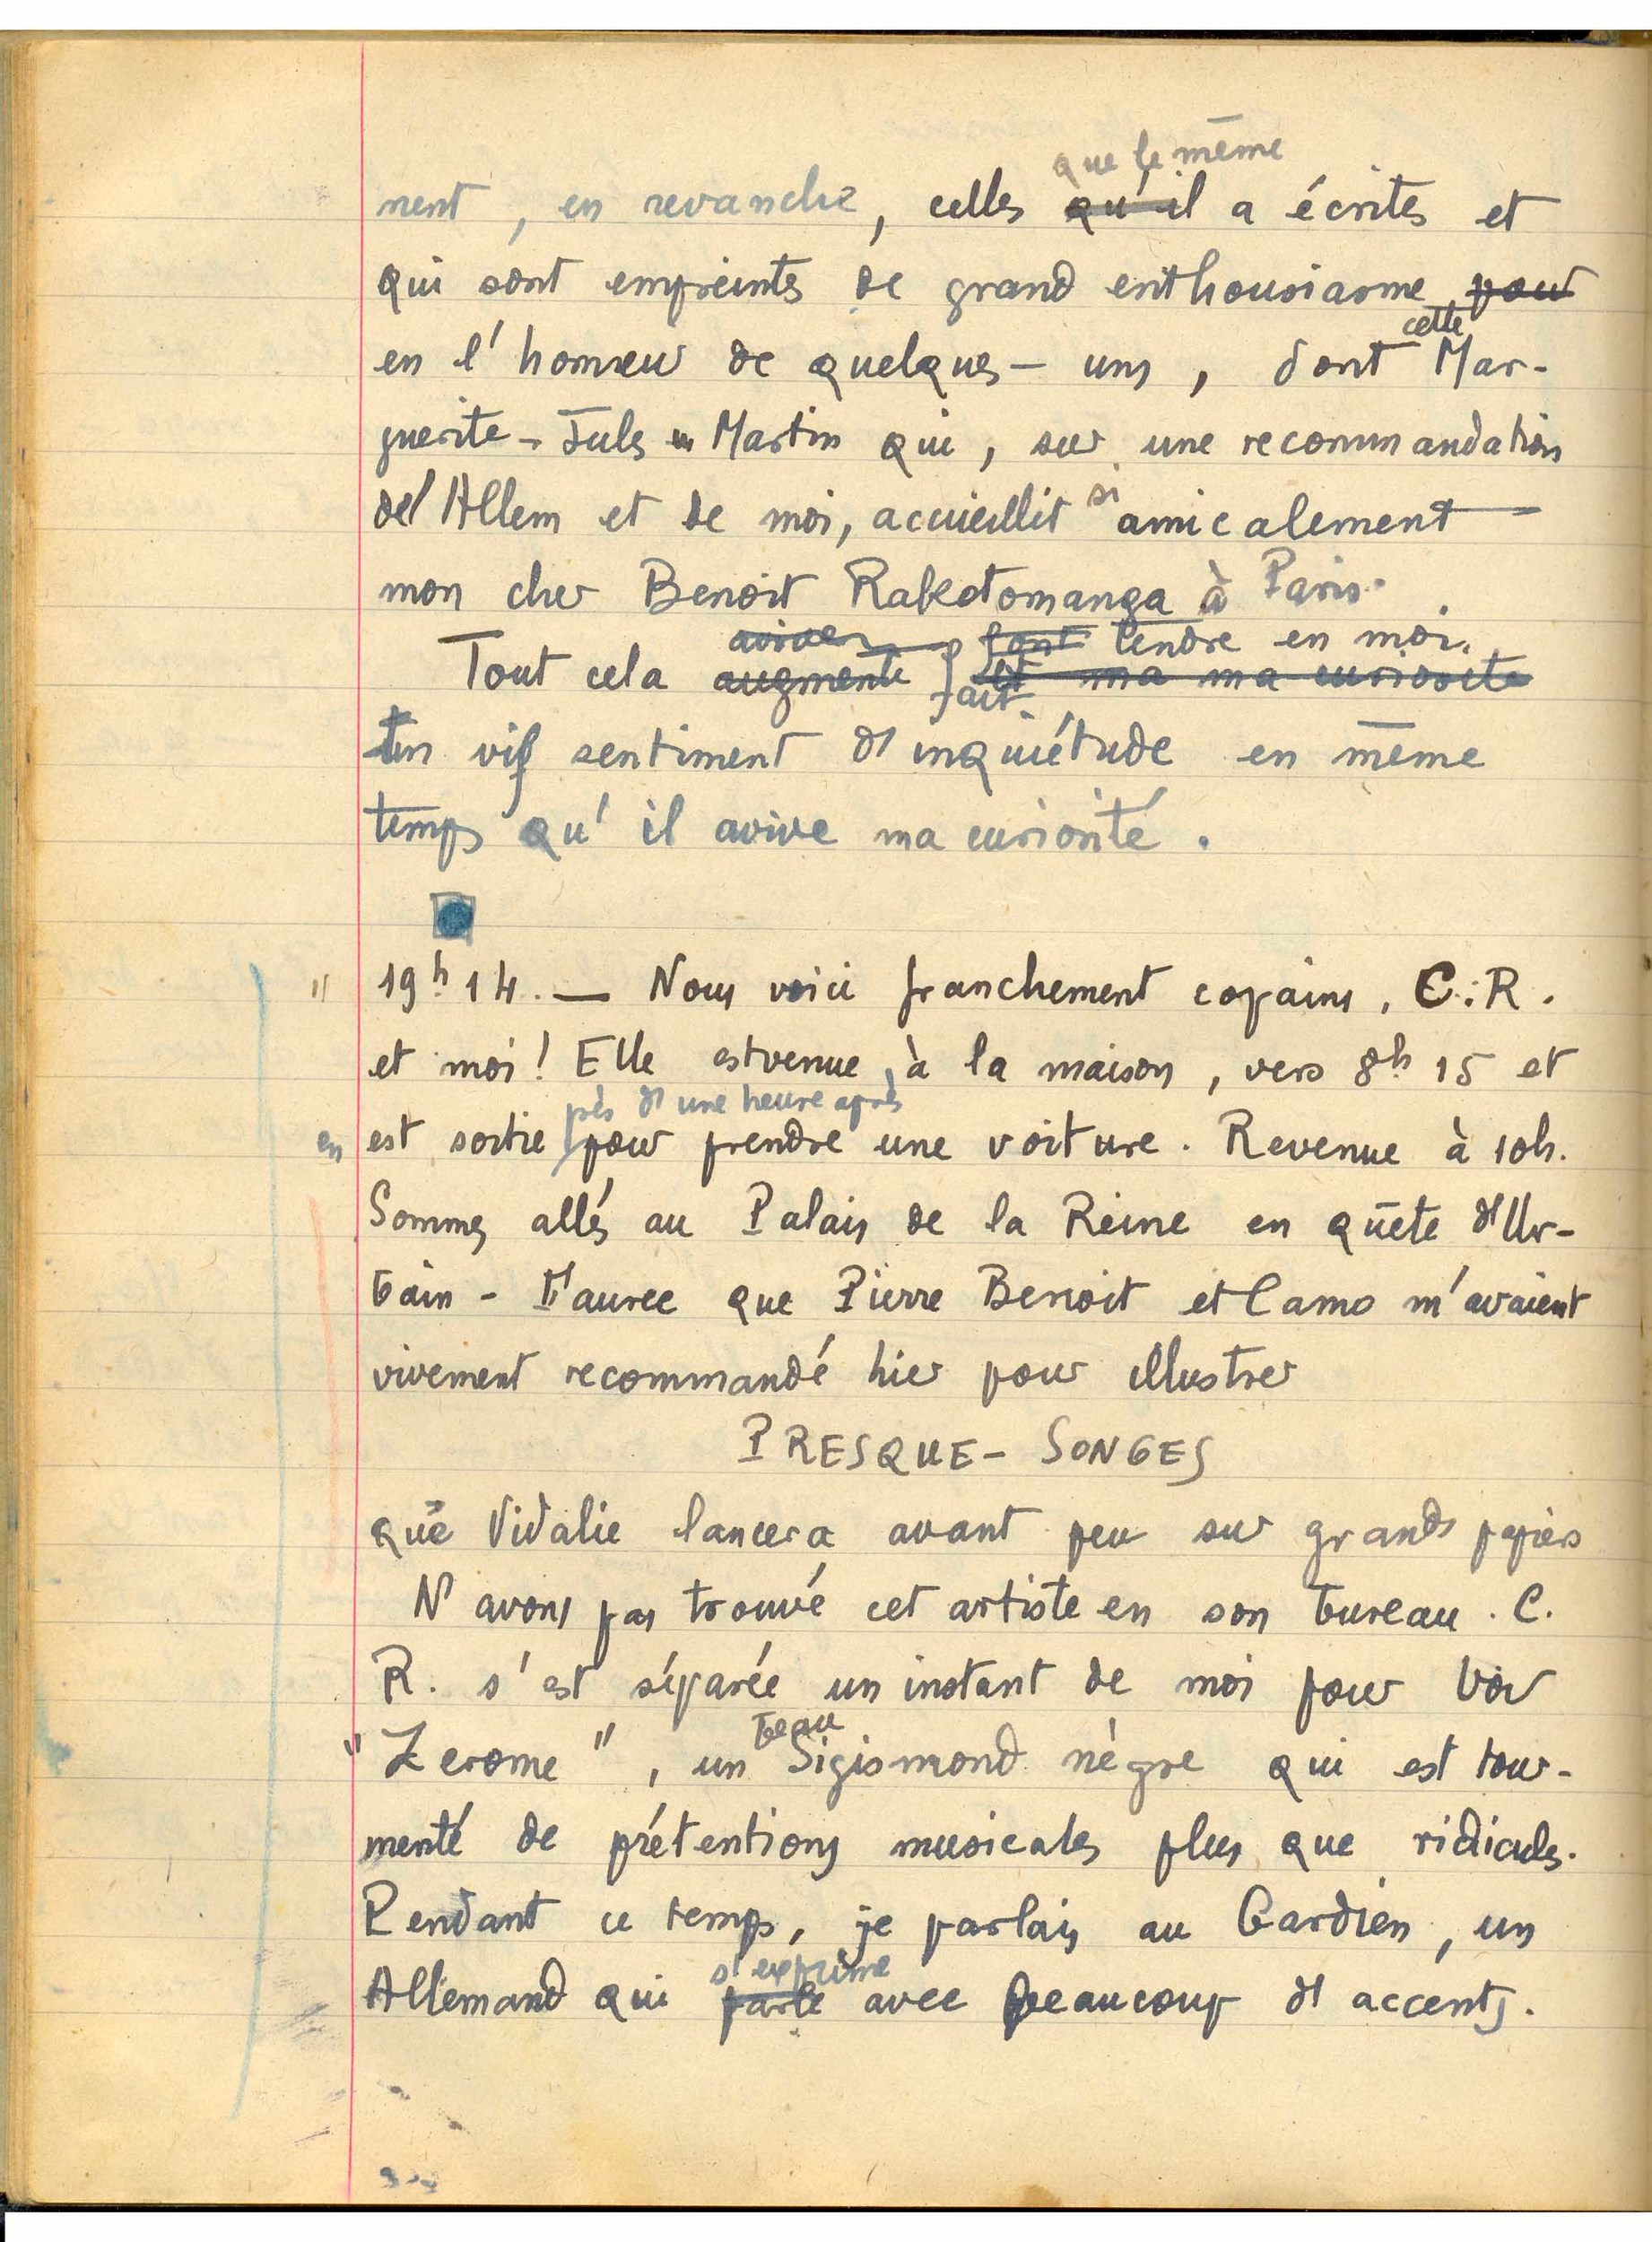 que le même
nent, en revanche, celles qu'il a écrites et
qui sont empreintes de grand enthousiasme pour
cette
en l'honneur de quelques-uns, dont Mar-
guerite-Jules Martin qui, sur une recommandation
si
del Allem et de moi, accueillit amicalement
mon cher Benoit Rakotomanga à Paris.
aviver font tendre en moi.
Tout cela augmente fait et ma ma curiosité
Un vif sentiment d'inquiétude en même
temps qu'il avive ma curiosité.
" 19h 14. — Nous voici franchement copains, C.R.
et moi! Elle est venue à la maison, vers 8h 15 et
près d'une heure après
en est sortie pour prendre une voiture. Revenue à 10h.
Sommes allés au Palais de la Reine en quête d'Ur-
bain-Faurec que Pierre Benoit et Camo m'avaient
vivement recommandé hier pour illustrer
PRESQUE-SONGES
que Vidalie lancera avant peu sur grands papiers
N'avons pas trouvé cet artiste en son bureau. C.
R. s'est séparée un instant de moi pour voir
beau
"Zerome", un Sigismond nègre qui est tour-
menté de prétentions musicales plus que ridicules.
Pendant ce temps, je parlais au Gardien, un
s'exprime
Allemand qui parle avec beaucoup d'accents.